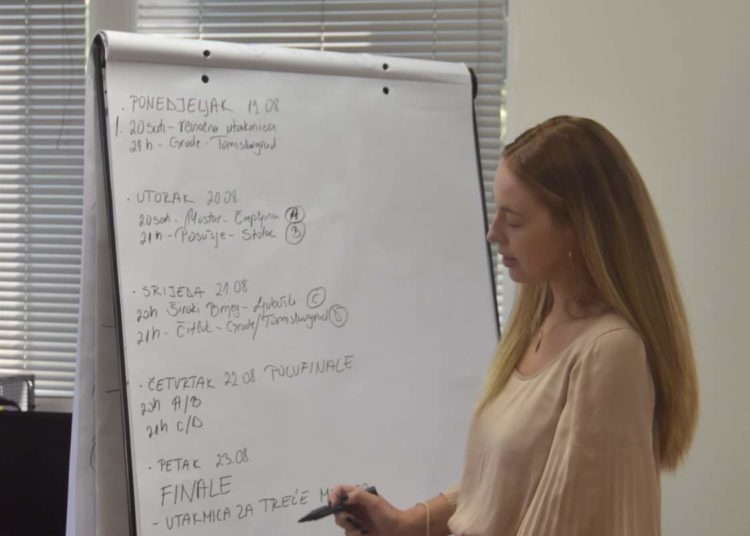 · PONEDJELJAK 19.08
1. 20sati - revialna utakmica
21h - Grude - Tomislavgrad
· UTORAK 20.08
20sati - Mostar - Čapljina (A)
21h - Posušje - Stolac (B)
· SRIJEDA 21.08
20h Široki Brijeg - Ljubuški (C)
21h - Čitluk - Grude/Tomislavgrad (D)
· ČETVRTAK 22.08. POLUFINALE
20h A/B
21h C/D
· PETAK 23.08.
FINALE
- UTAKMICA ZA TREĆE